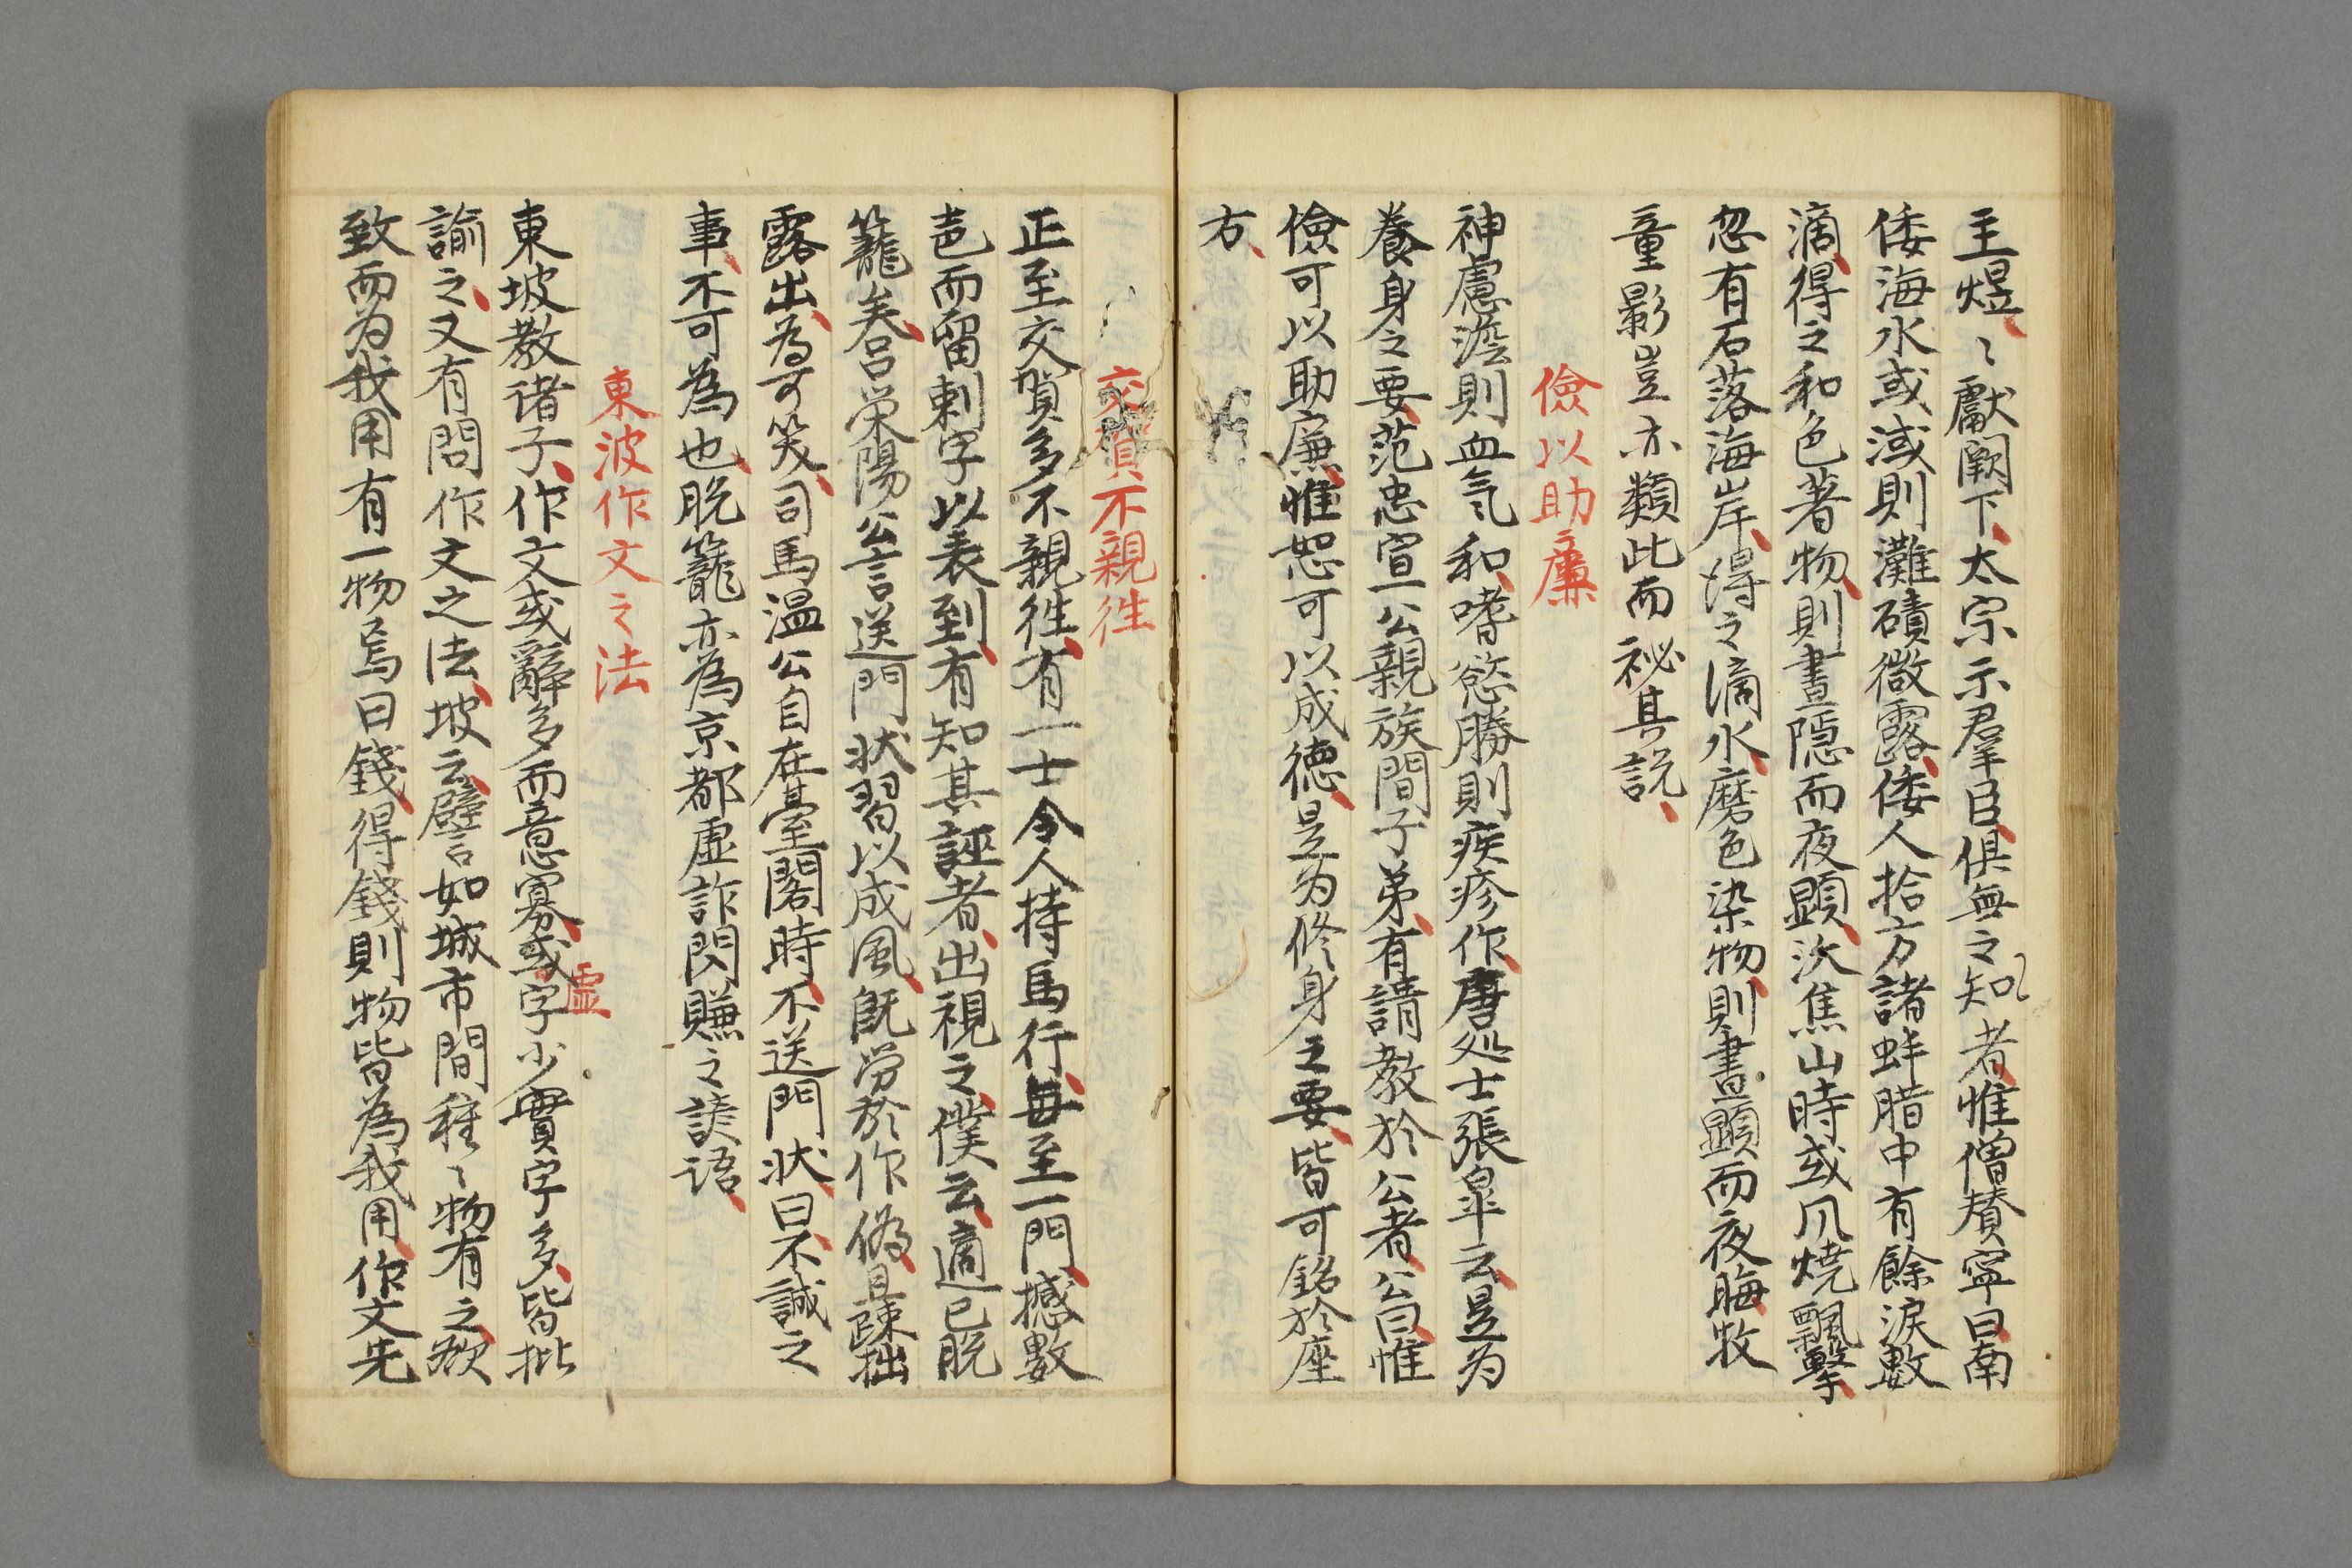 主煜〻獻闕下太宗示羣臣俱無之知者惟僧賛寧曰南
倭海水或減則灘磧微露倭人拾方諸蚌腊中有餘淚數
滴得之和色著物則晝隠而夜顕沃焦山時或风燒飄擊
忽有石落海岸得之滴水磨色染物則晝顕而夜晦牧
童影豈亦類此而祕其説
儉以助廉
神慮澹則血气和嗜慾勝則疾疹作唐処士張皐云是为
養身之要范忠宣公親族間子弟有請教於公者公曰惟
儉可以助廉惟恕可以成徳是为修身之要皆可銘於座
右
交賀不親徃
正至交賀多不親徃有一士令人持馬行每至一門撼數
而留刺字以表到有知其誣者出視之僕云適已脱
籠矣吕栄陽公言送門状習以成風既労於作偽且疎拙
露出為可笑司馬温公自在䑓閣時不送門状曰不誠之
事不可為也脱籠亦為京都虚詐閃賺之諺语
東波作文之法
東坡教诸子作文或辭多而意寡或虚字少實字多皆批
諭之又有問作文之法坡云譬如城市間種〻物有之欲
致而为我用有一物焉曰錢得錢則物皆為我用作文先